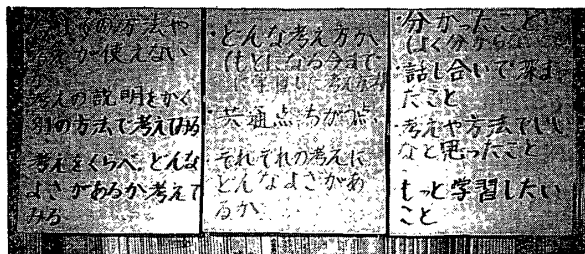 の方法や
考えが使えない
か
考えの説明をかく
別の方法で考えてみる
考えをくらべ、どんな
よさがあるか考えて
みる
・どんな考え方か
(もとになる今まで
に学習した考え方
・共通点、ちがう点、
それぞれの考えに
どんなよさがあ
るか
・分かったこと
(よく分からない
・話し合いで深まっ
たこと
・考えや方法でいい
なと思ったこと
もっと学習したい
こと